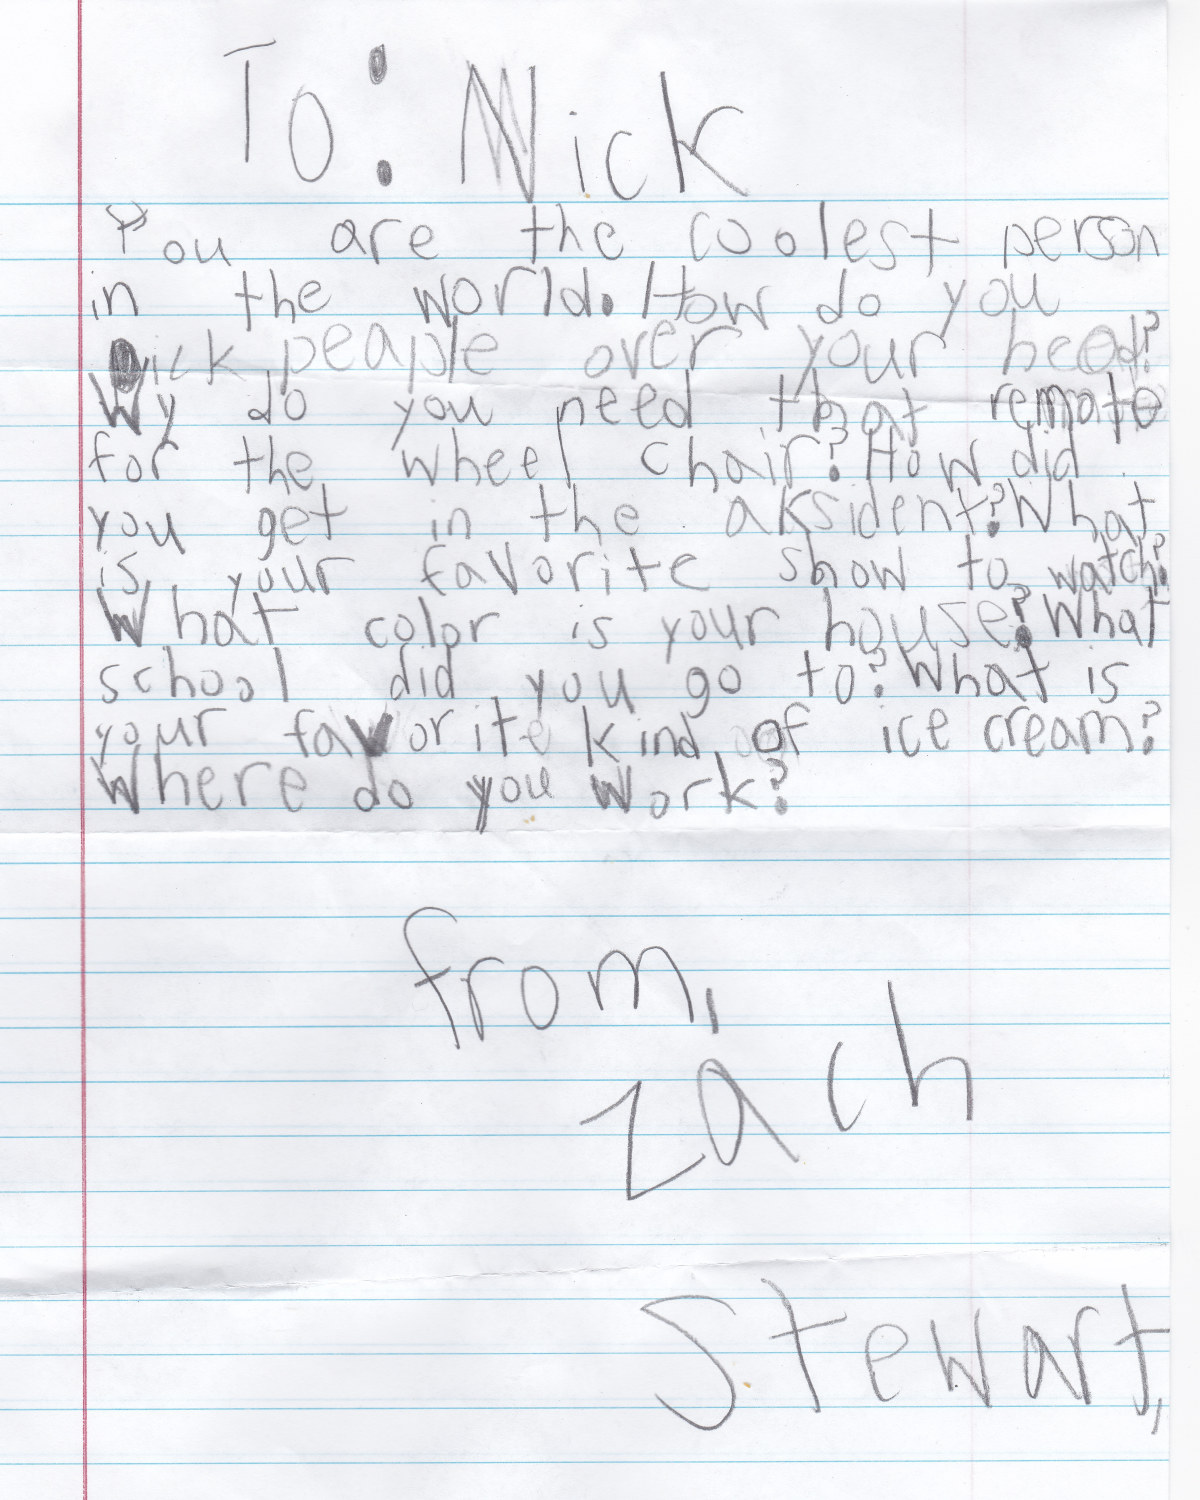 To: Nick
You are the coolest person
in the world. How do you
pick peaple over your head?
Wy do you need that remote
for the wheel chair? How did
you get in the aksident? What
is your favorite show to watch?
What color is your house? What
school did you go to? What is
your favorite kind of ice cream?
Where do you work?
from,
Zach
Stewart,